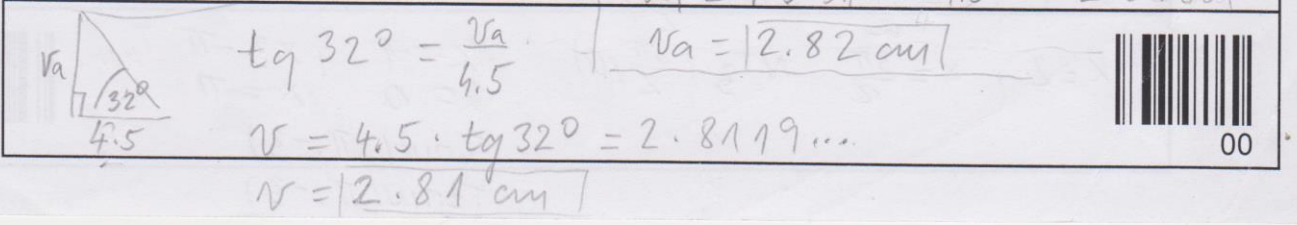 va 32° 4.5
tg 32° = va / 4.5
va = 2.82 cm
v = 4.5 · tg 32° = 2.8119...
v = 2.81 cm
00